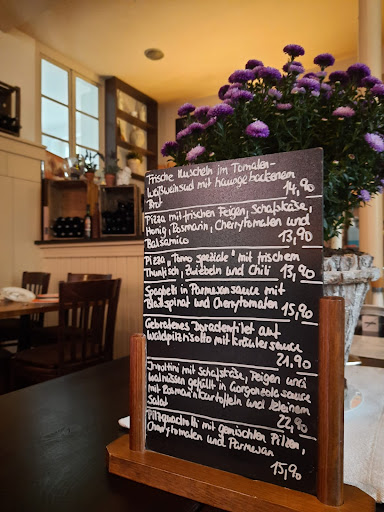 Frische Muscheln im Tomaten-
Weißweinsud mit hausgebackenem
Brot 14,90
Pizza mit frischen Feigen, Schafskäse,
Honig, Rosmarin, Cherrytomaten und
Balsamico 13,90
Pizza "Tonno speziale" mit frischem
Thunfisch, Zwiebeln und Chili 13,90
Spaghetti in Parmesansauce mit
Blattspinat und Cherrytomaten 15,90
Gebratenes Zanderfilet auf
Waldpilzrisotto mit Kräutersauce
21,90
Involtini mit Schafskäse, Feigen und
Walnüssen gefüllt in Gorgonzolasauce
mit Rosmarinkartoffeln und kleinem
Salat 22,90
Pilzquadrotti mit gemischten Pilzen,
Cherrytomaten und Parmesan
15,90